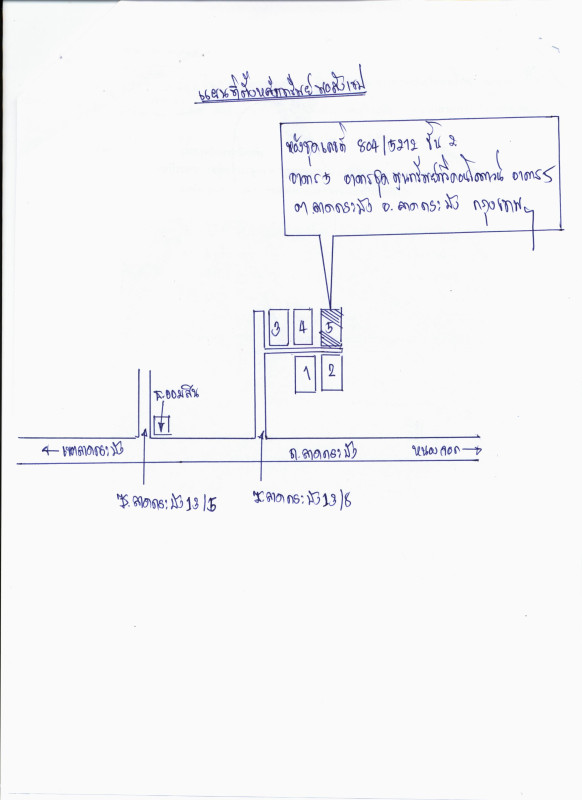 แผนที่ตั้งทรัพย์พอสังเขป
ห้องชุดเลขที่ 804/5212 ชั้น 2
อาคาร 5 อาคารชุด อาคาร 5
ต.ลาดกระบัง อ.ลาดกระบัง กรุงเทพฯ
3 4 5
1 2
ธ.ออมสิน
ลาดกระบัง ถ.ลาดกระบัง หนองจอก
ซ.ลาดกระบัง 13/5 ซ.ลาดกระบัง 13/8